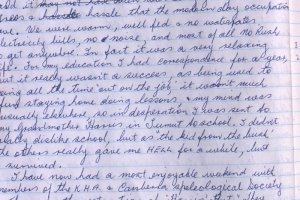 and it may not have had such
trees & handle that the modern day occupation
have. We were warm, well fed & no watergates,
electricity bills, no noise, and most of all No Rush
to get anywhere. In fact it was a very relaxing
life. For my education I had correspondence for a year,
but it really wasn't a success, as being used to
being all the time out "on the job", it wasn't much
fun staying home doing lessons, & my mind was
usually elsewhere, so in desperation I was sent to
my Grandmother Harris in Tumut to school. I didn't
really dislike school, but as 'the kid from the bush'
the others really gave me HELL for a while, but
I survived.
I have now had a most enjoyable weekend with
members of the K.H.A. & Canberra Speleological Society